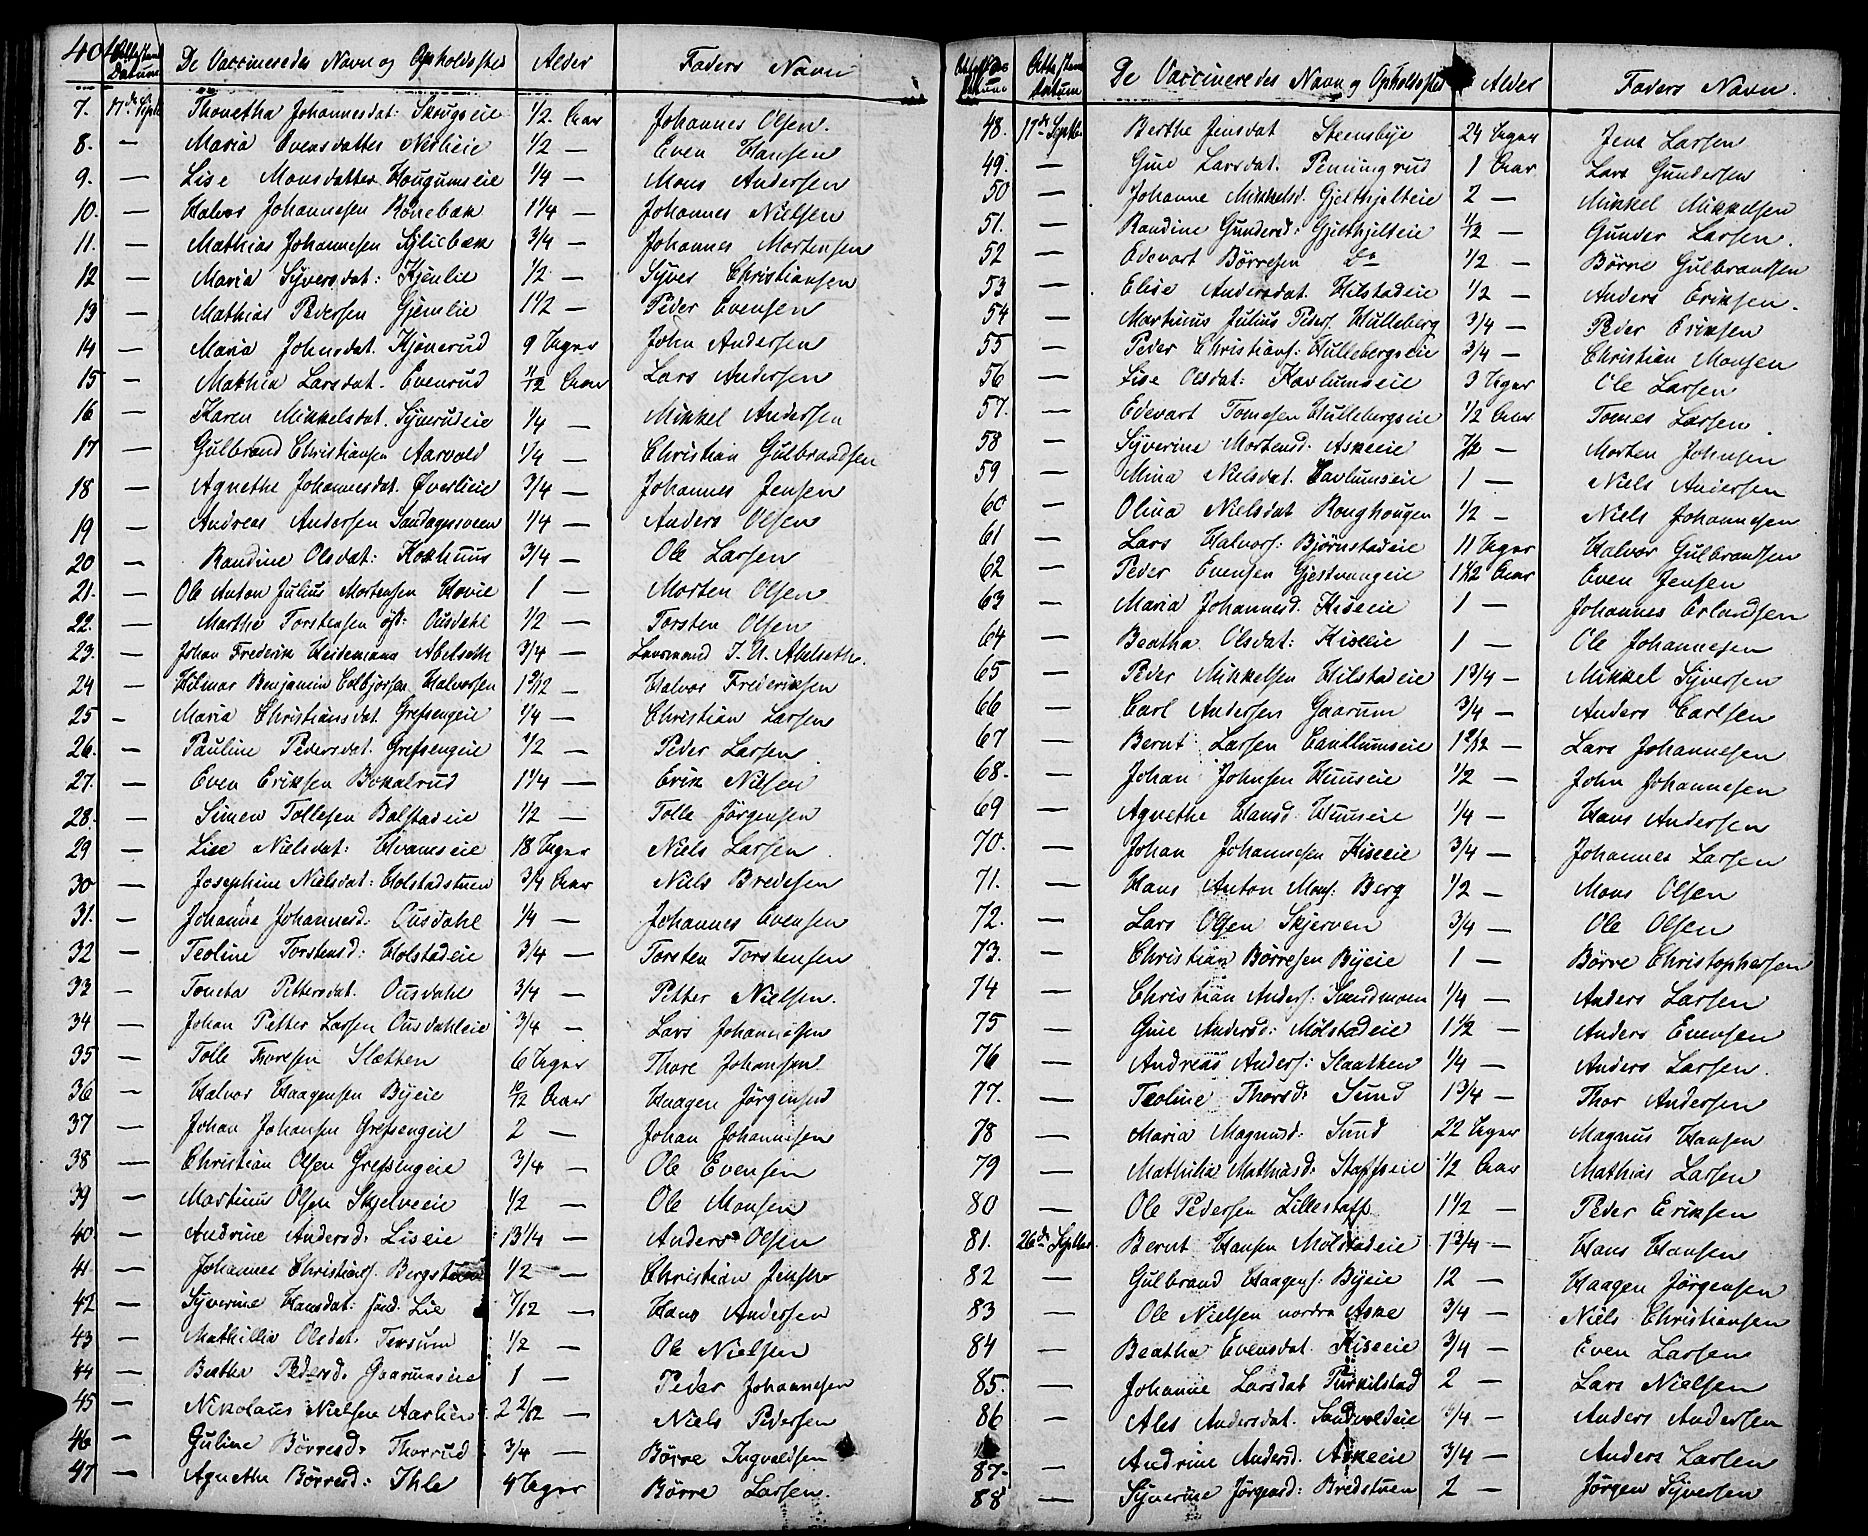 404
Attestens Datum De Vaccineredes Navn og Opholdssted Alder Faders Navn
7. 17de Septb Thonetha Johannesdat: Skougseie 1/2 Aar Johannes Olsen.
8. — Maria Evensdatter Nedlieie 1/2 — Even Hansen
9. — Lise Monsdatter Hougumseie 1/4 — Mons Andersen
10. — Halvor Johannesen Bönebæk 1 1/4 — Johannes Nielsen
11. — Mathias Johannesen Syliebæk 3/4 — Johannes Mortensen
12 — Maria Syversdat: Kjenlie 1/2 — Syver Christiansen
13 — Mathias Pedersen Gjemlie 1 1/2 — Peder Evensen
14 — Maria Johnsdat. Kjonerud 9 Uger John Andersen
15 — Mathea Larsdat. Evenrud 11/12 Aar Lars Andersen
16 — Karen Mikkelsdat. Syverudeie 1/4 — Mikkel Andersen
17 — Gulbrand Christiansen Aarvold 1/4 — Christian Gulbrandsen
18 — Agnethe Johannesdat. Øverlieie 3/4 — Johannes Jensen
19 — Andreas Andersen Sandagessveen 1/4 — Anders Olsen
20 — Randine Olsdat: Kokhuus 3/4 — Ole Larsen
21. — Ole Anton Julius Mortensen Hovie 1 — Morten Olsen
22. — Marthe Torstensen öst: Ousdahl 1/2 — Torsten Olsen
23. — Johan Frederik Heidemann Abelseth 3/4 — Lensmand I. N. Abelseth.
24 — Hilmar Benjamin Colbjørsen Halvorsen 1 5/12 — Halvor Frederiksen
25 — Maria Christiansdat. Grefsengeie 1/4 — Christian Larsen
26. — Pauline Pedersdat. Grefsengeie 1/2 — Peder Larsen
27. — Even Eriksen Bokalrud 1 1/4 — Erik Nilsen
28. — Simen Tollesen Balstadeie 1/2 — Tolle Jørgensen
29 — Lise Nielsdat: Hvamseie 18 Uger Niels Larsen
30 — Josephine Nielsdat: Holstadstuen 3/4 Aar Niels Bredesen
31. — Johanna Johannesd. Ousdahl 1/4 — Johannes Evensen
32 — Teoline Torstensd: Holstadeie 3/4 — Torsten Torstensen
33 — Toneta Pettersdat. Ousdahl 3/4 — Petter Nielsen.
34 — Johan Petter Larsen Ousdahleie 3/4 — Lars Johannesen
35 — Tolle Thoresen Slætten 6 Uger Thore Johansen
36 — Halvor Haagensen Byeie 10/12 Aar Haagen Jørgensen
37 — Johan Johansen Grefsengeie 2 — Johan Johannesen
38 — Christian Olsen Grefsengeie 3/4 — Ole Evensen
39 — Martinus Olsen Skjelveeie 1/2 — Ole Monsen
40. — Andrine Andersd. Liseie 13 1/4 — Anders Olsen
41 — Johannes Christians. Bergstuen 1/2 — Christian Jensen
42 — Syverine Hansdat: sönd. Lie 7/12 — Hans Andersen
43 — Mathillia Olsdat. Tersum 1/2 — Ole Nielsen
44 — Berthe Pedersd. Gaarumseie 1 — Peder Johannesen
45 — Nikolaus Nielsen Aarlien 2 2/12 — Niels Pedersen
46 — Guline Börresd. Thorrud 3/4 — Börre Ingvaldsen
47 — Agnethe Börresd: Ihle 4 Uger Börre Larsen.
Attestens Datum De Vaccineredes Navn og Opholdssted Alder Faders Navn.
48. 17de Septb. Berthe Jensdat Steensbye 24 Uger Jens Larsen
49. — Gine Larsdat. Penningrud 1 Aar Lars Gundersen
50 — Johanne Mikkelsd. Gjelthjelteie 2 — Mikkel Mikkelsen
51. — Randine Gundersd: Gjelthjelteie 1/2 — Gunder Larsen.
52 — Edevart Børresen Do 1/2 — Børre Gulbrandsen
53 — Elise Andersdat. Hilstadeie 1/2 — Anders Eriksen.
54 — Martinus Julius Peders. Hulleberg 3/4 — Peder Eriksen
55 — Peder Christians: Hullebergseie 3/4 — Christian Monsen
56 — Lise Olsdat: Kavlumseie 3 Uger Ole Larsen
57. — Edevart Tomesen Hullebergseie 1/2 Aar Tomes Larsen.
58 — Syverine Mortensd. Askeeie 7/12 — Morten Johnsen
59 — Mina Nielsdat. Cavlumseie 1 — Niels Andersen
60 — Olina Nielsdat Roughougen 1/2 — Niels Johannesen
61 — Lars Halvors: Bjørnstadeie 11 Uger Halvor Gulbrandsen
62 — Peder Evensen Gjestvangeie 1 1/2 Aar Even Jensen
63 — Maria Johannesd. Kiseeie 1 — Johannes Erlandsen
64 — Beatha Olsdat: Kiseeie 1 — Ole Johannesen
65 — Peder Mikkelsen Hilstadeie 1 3/4 — Mikkel Syversen
66 — Carl Andersen Gaarum 3/4 — Anders Carlsen
67 — Bernt Larsen Cautlumseie 1 2/12 — Lars Johannesen
68. — Johan Johnsen Huuseie 1/2 — John Johannesen
69 — Agnethe Hansd. Huuseie 1/4 — Hans Andersen
70. — Johan Johannesen Kiseeie 3/4 — Johannes Larsen
71. — Hans Anton Mons: Berg 1/2 — Mons Olsen
72. — Lars Olsen Skjerven 3/4 — Ole Olsen
73. — Christian Börresen Byeie 1 — Börre Christophersen
74 — Christian Anders: Sundmoen 1/4 — Anders Larsen
75 — Gine Andersd: Mölstadeie 1 1/2 — Anders Evensen
76 — Andreas Anders: Slaatten 1/4 — Anders Larsen.
77. — Teoline Thorsd. Sund 1 3/4 — Thor Andersen
78 — Maria Magnusd: Sund 22 Uger Magnus Hansen
79 — Mathilia Mathiasd. Staffseie 1/2 Aar Mathias Larsen
80 — Ole Pedersen Lillestaff 1 1/2 — Peder Eriksen
81. 26de Septbr. Bernt Hansen Mölstadeie 1 3/4 — Hans Hansen
82 — Gulbrand Haagens: Byeie 12 — Haagen Jørgensen
83 — Ole Nielsen nordre Aske 3/4 — Niels Christiansen
84 — Beatha Evensdat. Kiseeie 3/4 — Even Larsen
85. — Johanne Larsdat Turkilstad 2 — Lars Nielsen
86 — Ales Andersdat. Sandvoldeie 1/4 — Anders Andersen
87. — Andrine Andersd. Askeeie 3/4 — Anders Larsen
88 — Syverine Jørgensd: Bredstuen 2 — Jørgen Syversen